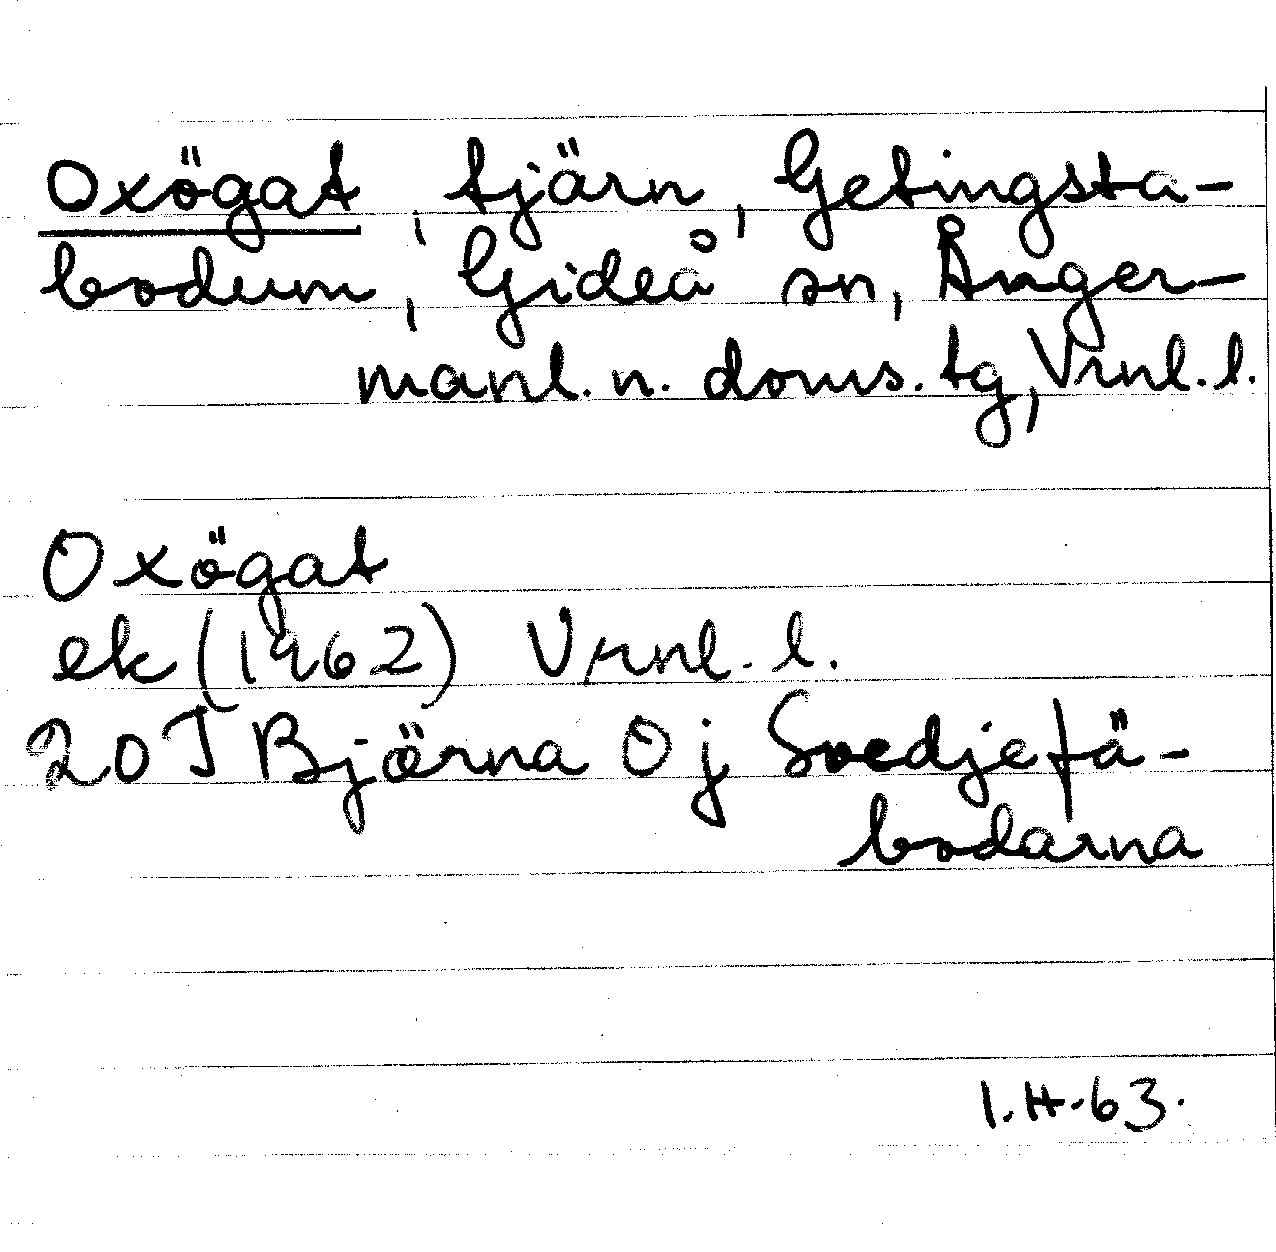 Oxögat, tjärn, Getingsta-
bodum, Gideå sn, Ånger-
manl. n. doms. tg, Vrnl. l.
Oxögat
ek (1962) Vrnl. l.
20J Björna Oj Svedjefä-
bodarna
I.H.63.